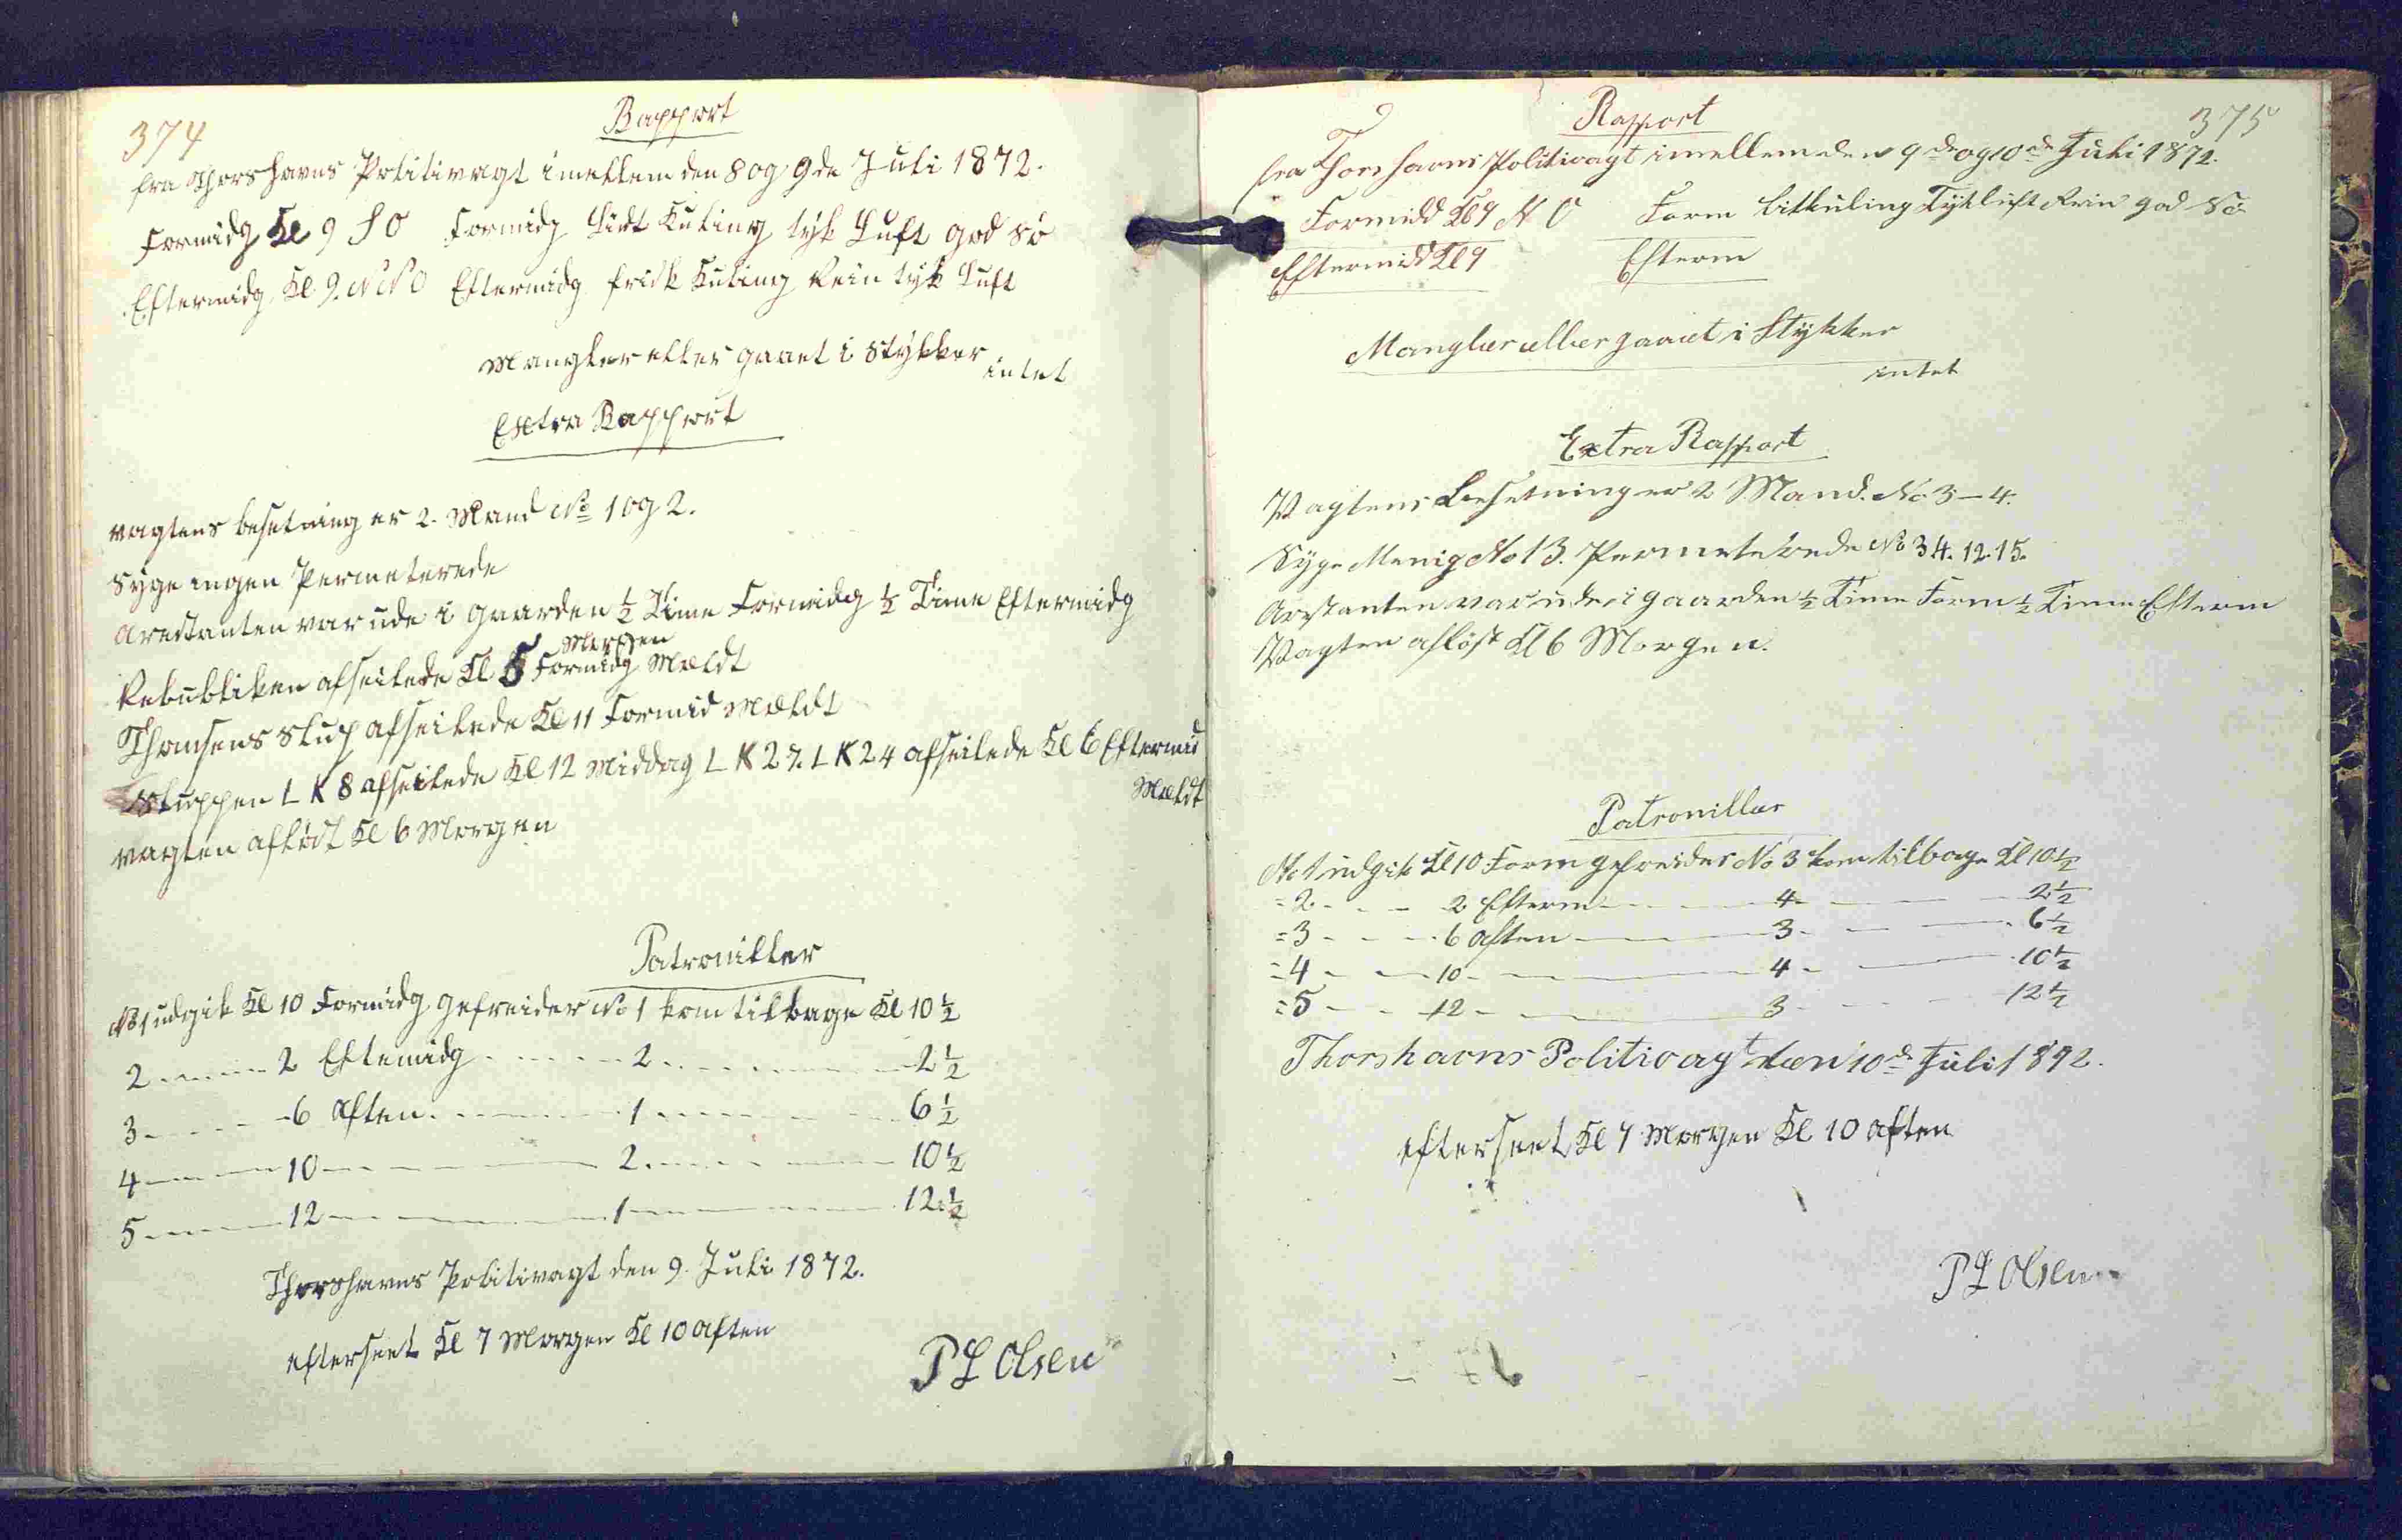 374
Rapport
fra Thorshavns Politivagt imellem den 8 og 9de Juli 1872.
Formidg Kl 9 S O Formidg Lidt Kuling tyk Luft god Sö
Eftermidg Kl. 9. N N O Eftermidg frisk Kuling Rein tyk Luft
Mangler eller gaaet i Stykker
intet
Extra Rapport
Vagtens besetning er 2. Mand No 1 og 2.
Syge ingen Permeterede
Arestanten var ude i Gaarden ½ Time Formidg ½ Time Eftermidg
Morgen
Rebubliken afseilede Kl 5 Formidg Mældt
Thomsens Slup afseilede Kl 11 Formid Mældt
Sluppen L K 8 afseilede Kl 12 Middag L K 27. L K 24 afseilede Kl 6 Eftermid
Mældt
Vagten aflöst Kl 6 Morgen
Patrouiller
No 1 udgik Kl 10 Formidg Gefreider No 1 kom tilbage Kl 10 ½
2 2 Eftemidg 2 2 ½
3 6 Aften 1 6 ½
4 10 2 10 ½
5 12 1 12 ½
Thorshavns Politivagt den 9. Juli 1872.
efterseet Kl 7 Morgen Kl 10 Aften
P L Olsen
375
Rapport
fra Thorshavns Politivagt imellem den 9de og 10de Juli 1872.
Formidd Kl 9 N O Form Litkuling Tyklüft Rein god Sö
Eftermidd Kl 9 Efterm
Mangler eller gaaet i Stykker
intet
Extra Rapport
Vagtens Besetning er 2 Mand. No 3 - 4.
Syge Menig No 13. Permeterede No 34. 12. 15.
Arestanten var ude i gaarden ½ Time Form ½ Time Efterm
Vagten aflöst Kl 6 Morgen.
Patrouiller
No 1 udgik Kl 10 Form gefreider No 3 kom tilbage Kl 10 ½
= 2 2 Efterm 4 2 ½
= 3 6 Aften 3 6 ½
= 4 10 4 10 ½
= 5 12 3 12 ½
Thorshavns Politivagt den 10de Juli 1872.
efterseet Kl 7 Morgen Kl 10 Aften
P L Olsen